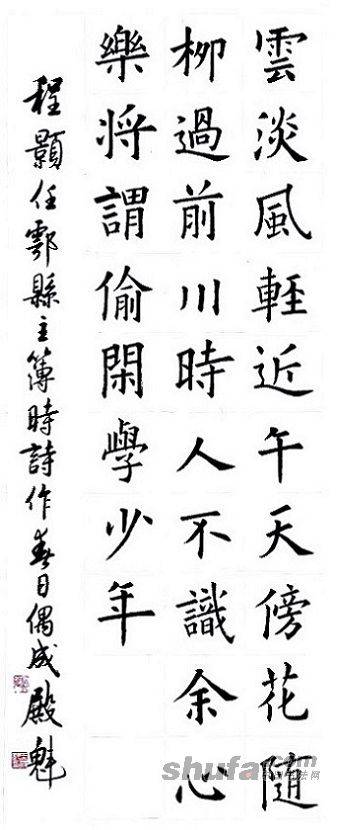 雲淡風輕近午天傍花隨
柳過前川時人不識余心
樂將謂偷閑學少年
程顥任鄠縣主簿時詩作春日偶成殿魁
shufa.com